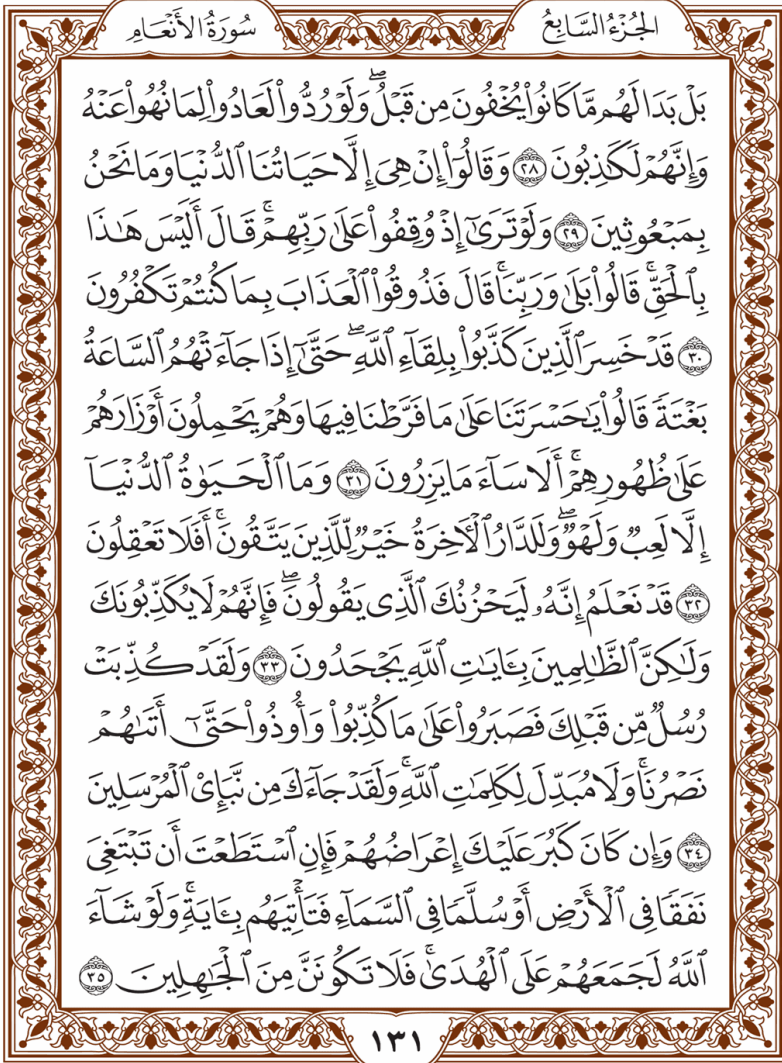 الجُزْءُ السَّابِعُ
سُورَةُ الأَنْعَامِ
بَلْ بَدَا لَهُم مَّا كَانُوا۟ يُخْفُونَ مِن قَبْلُ ۖ وَلَوْ رُدُّوا۟ لَعَادُوا۟ لِمَا نُهُوا۟ عَنْهُ
وَإِنَّهُمْ لَكَـٰذِبُونَ ٢٨ وَقَالُوٓا۟ إِنْ هِىَ إِلَّا حَيَاتُنَا ٱلدُّنْيَا وَمَا نَحْنُ
بِمَبْعُوثِينَ ٢٩ وَلَوْ تَرَىٰٓ إِذْ وُقِفُوا۟ عَلَىٰ رَبِّهِمْ ۚ قَالَ أَلَيْسَ هَـٰذَا
بِٱلْحَقِّ ۚ قَالُوا۟ بَلَىٰ وَرَبِّنَا ۚ قَالَ فَذُوقُوا۟ ٱلْعَذَابَ بِمَا كُنتُمْ تَكْفُرُونَ
٣٠ قَدْ خَسِرَ ٱلَّذِينَ كَذَّبُوا۟ بِلِقَآءِ ٱللَّهِ ۖ حَتَّىٰٓ إِذَا جَآءَتْهُمُ ٱلسَّاعَةُ
بَغْتَةً قَالُوا۟ يَـٰحَسْرَتَنَا عَلَىٰ مَا فَرَّطْنَا فِيهَا وَهُمْ يَحْمِلُونَ أَوْزَارَهُمْ
عَلَىٰ ظُهُورِهِمْ ۚ أَلَا سَآءَ مَا يَزِرُونَ ٣١ وَمَا ٱلْحَيَوٰةُ ٱلدُّنْيَآ
إِلَّا لَعِبٌ وَلَهْوٌ ۖ وَلَلدَّارُ ٱلْـَٔاخِرَةُ خَيْرٌ لِّلَّذِينَ يَتَّقُونَ ۗ أَفَلَا تَعْقِلُونَ
٣٢ قَدْ نَعْلَمُ إِنَّهُۥ لَيَحْزُنُكَ ٱلَّذِى يَقُولُونَ ۖ فَإِنَّهُمْ لَا يُكَذِّبُونَكَ
وَلَـٰكِنَّ ٱلظَّـٰلِمِينَ بِـَٔايَـٰتِ ٱللَّهِ يَجْحَدُونَ ٣٣ وَلَقَدْ كُذِّبَتْ
رُسُلٌ مِّن قَبْلِكَ فَصَبَرُوا۟ عَلَىٰ مَا كُذِّبُوا۟ وَأُوذُوا۟ حَتَّىٰٓ أَتَىٰهُمْ
نَصْرُنَا ۚ وَلَا مُبَدِّلَ لِكَلِمَـٰتِ ٱللَّهِ ۚ وَلَقَدْ جَآءَكَ مِن نَّبَإِى۟ ٱلْمُرْسَلِينَ
٣٤ وَإِن كَانَ كَبُرَ عَلَيْكَ إِعْرَاضُهُمْ فَإِنِ ٱسْتَطَعْتَ أَن تَبْتَغِىَ
نَفَقًا فِى ٱلْأَرْضِ أَوْ سُلَّمًا فِى ٱلسَّمَآءِ فَتَأْتِيَهُم بِـَٔايَةٍ ۚ وَلَوْ شَآءَ
ٱللَّهُ لَجَمَعَهُمْ عَلَى ٱلْهُدَىٰ ۚ فَلَا تَكُونَنَّ مِنَ ٱلْجَـٰهِلِينَ ٣٥
١٣١